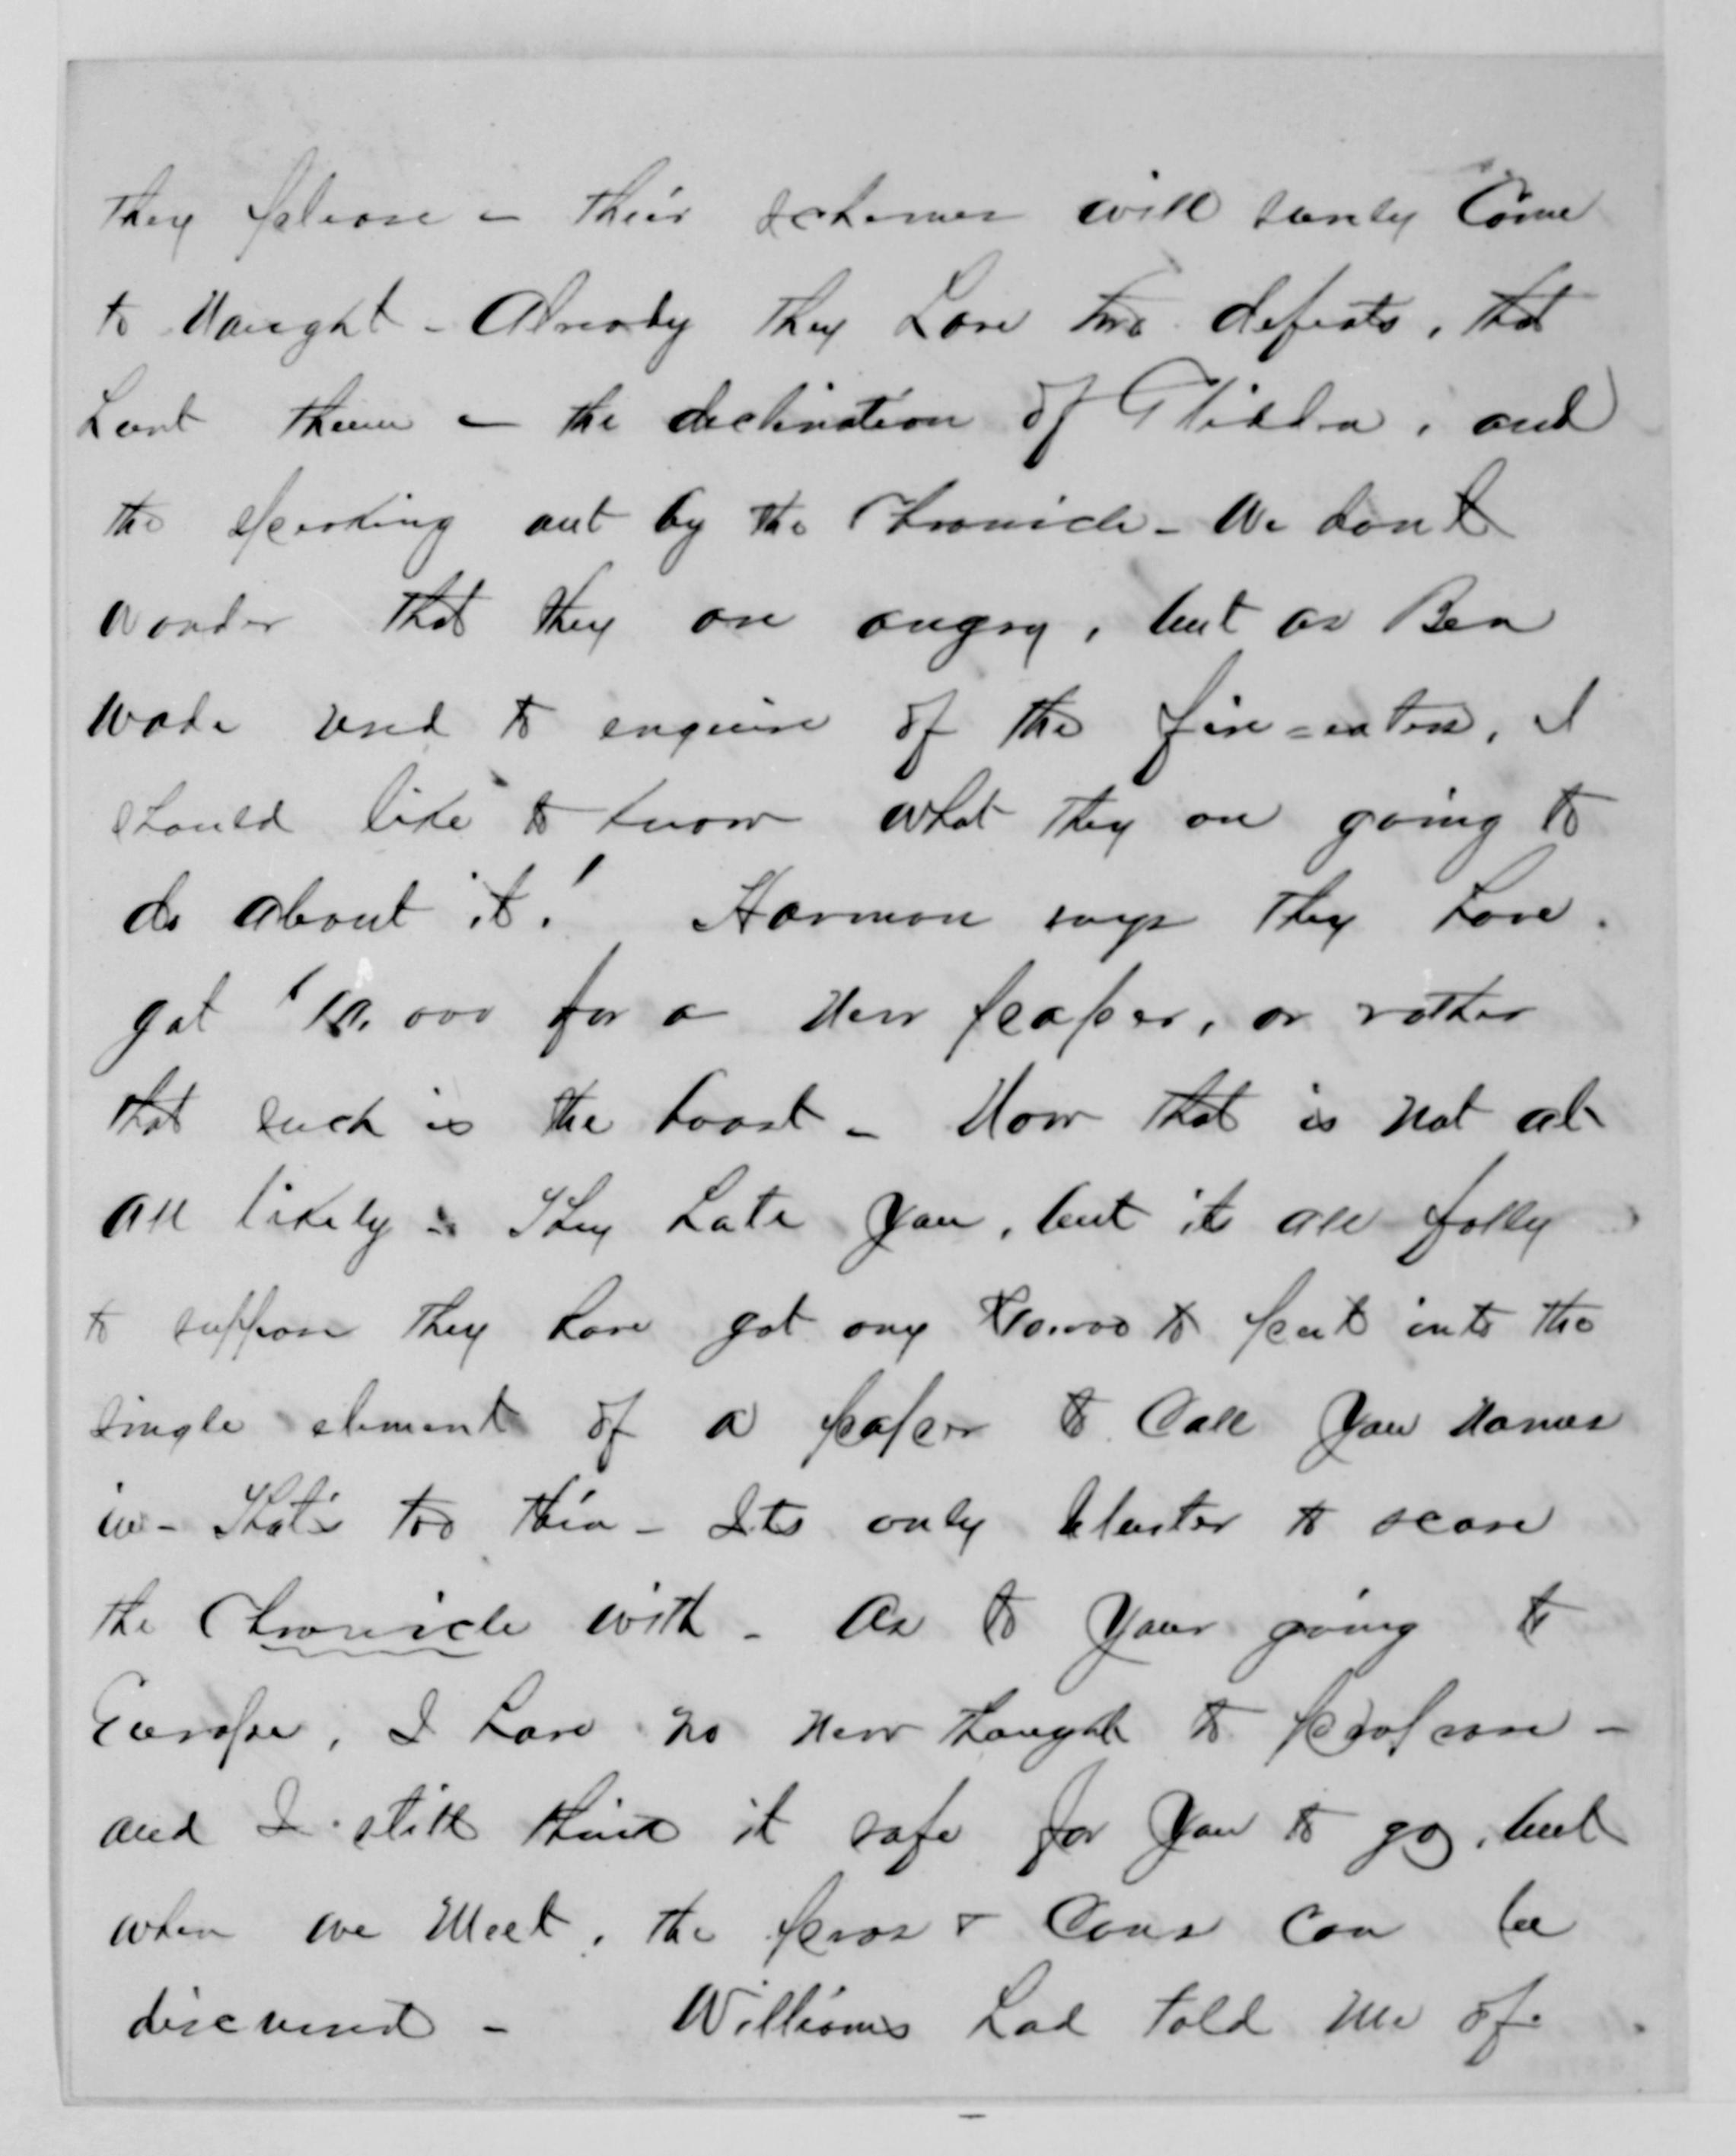 they please – their schemes will surely Come
to Naught – Already they have two defeats, that
hurt them – the declination of Glidden, and
the speaking out by the Chronicle – We don't
wonder that they are angry, but as Ben
Wade used to enquire of the fire=eaters, I
should like to know what they are going to
do about it!' Harmon says they have
got 10,000 for a new paper, or rather
that such is the boast – Now that is not at
all likely – They hate you, but its all folly
to suppose they have got any $10.000 to put into the
single element of a paper to Call you names
in – That's too thin – Its only bluster to scare
the Chronicle with – As to your going to
Europe, I have no new thought to propose –
and I still think it safe for you to go, but
when we meet, the pros & Cons can be
discussed – Williams had told me of